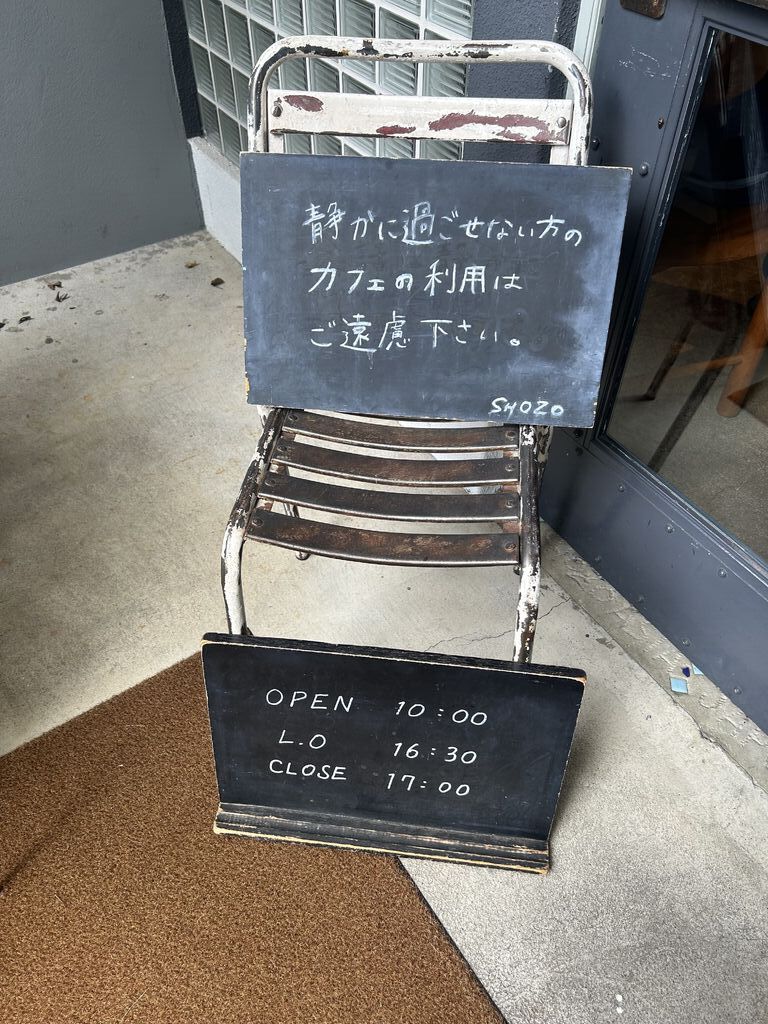 静かに過ごせない方の
カフェの利用は
ご遠慮下さい。
SHOZO
OPEN 10:00
L.O 16:30
CLOSE 17:00